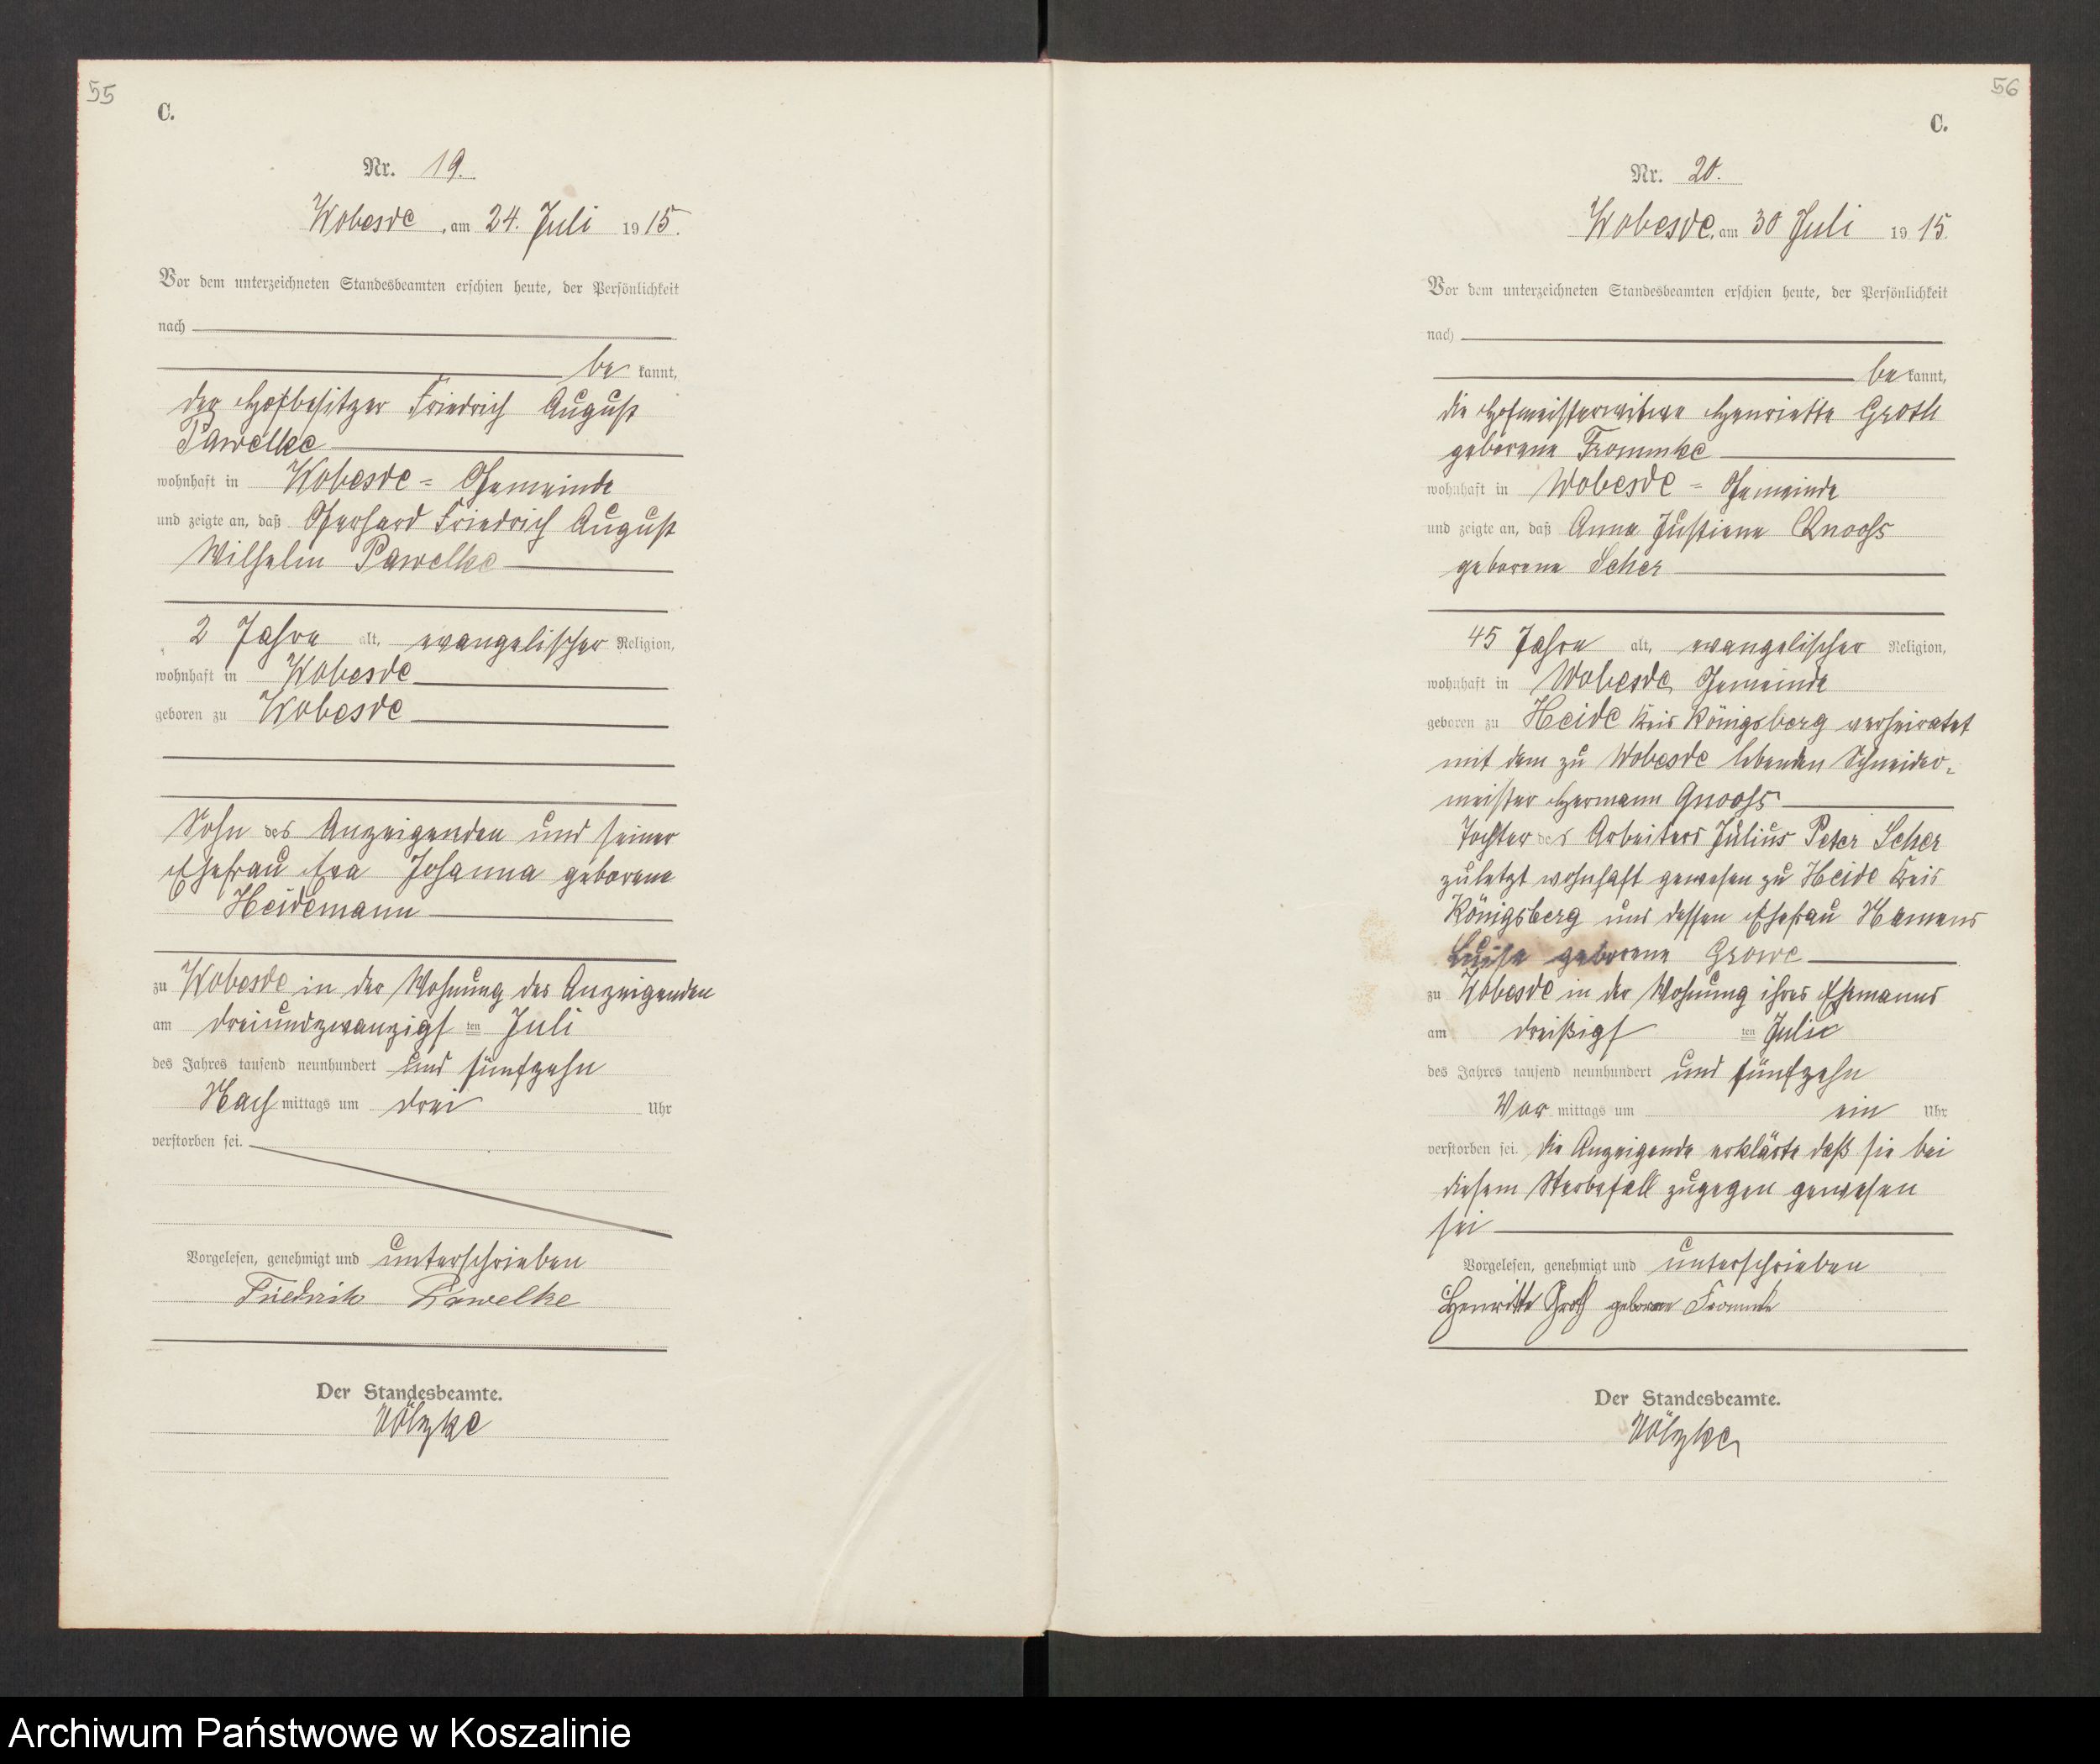 55
C.
Nr. 19.
Wobesde, am 24. Juli 1915.
Vor dem unterzeichneten Standesbeamten erschien heute, der Persönlichkeit
nach
be kannt,
der Hofbesitzer Friedrich August
Pawelke
wohnhaft in Wobesde = Gemeinde
und zeigte an, daß Gerhard Friedrich August
Wilhelm Pawelke
2 Jahre alt, evangelischer Religion,
wohnhaft in Wobesde
geboren zu Wobesde
Sohn des Anzeigenden und seiner
Ehefrau Eva Johanna geborene
Heidemann
zu Wobesde in der Wohnung des Anzeigenden
am dreiundzwanzigsten Juli
des Jahres tausend neunhundert und fünfzehn
Nachmittags um drei Uhr
verstorben sei.
Vorgelesen, genehmigt und unterschrieben
Friedrich Pawelke
Der Standesbeamte.
Nölzke
56
C.
Nr. 20.
Wobesde, am 30 Juli 1915.
Vor dem unterzeichneten Standesbeamten erschien heute, der Persönlichkeit
nach
be kannt,
die Hofmeisterwitwe Henriette Groth
geborene Frommke
wohnhaft in Wobesde = Gemeinde
und zeigte an, daß Anna Justiene Gnoohs
geborene Scher
45 Jahre alt, evangelischer Religion,
wohnhaft in Wobesde Gemeinde
geboren zu Heide Kreis Königsberg verheiratet
mit dem zu Wobesde lebenden Schneider-
meister Hermann Gnoohs
Tochter des Arbeiters Julius Peter Scher
zuletzt wohnhaft gewesen zu Heide Kreis
Königsberg und dessen Ehefrau Namens
Luise geborene Growe
zu Wobesde in der Wohnung ihres Ehemanns
am dreißigsten Juli
des Jahres tausend neunhundert und fünfzehn
Vormittags um ein Uhr
verstorben sei. die Anzeigende erklärte daß sie bei
diesem Sterbefall zugegen gewesen
sei
Vorgelesen, genehmigt und unterschrieben
Henriette Groth geborene Frommke
Der Standesbeamte.
Nölzke
Archiwum Państwowe w Koszalinie